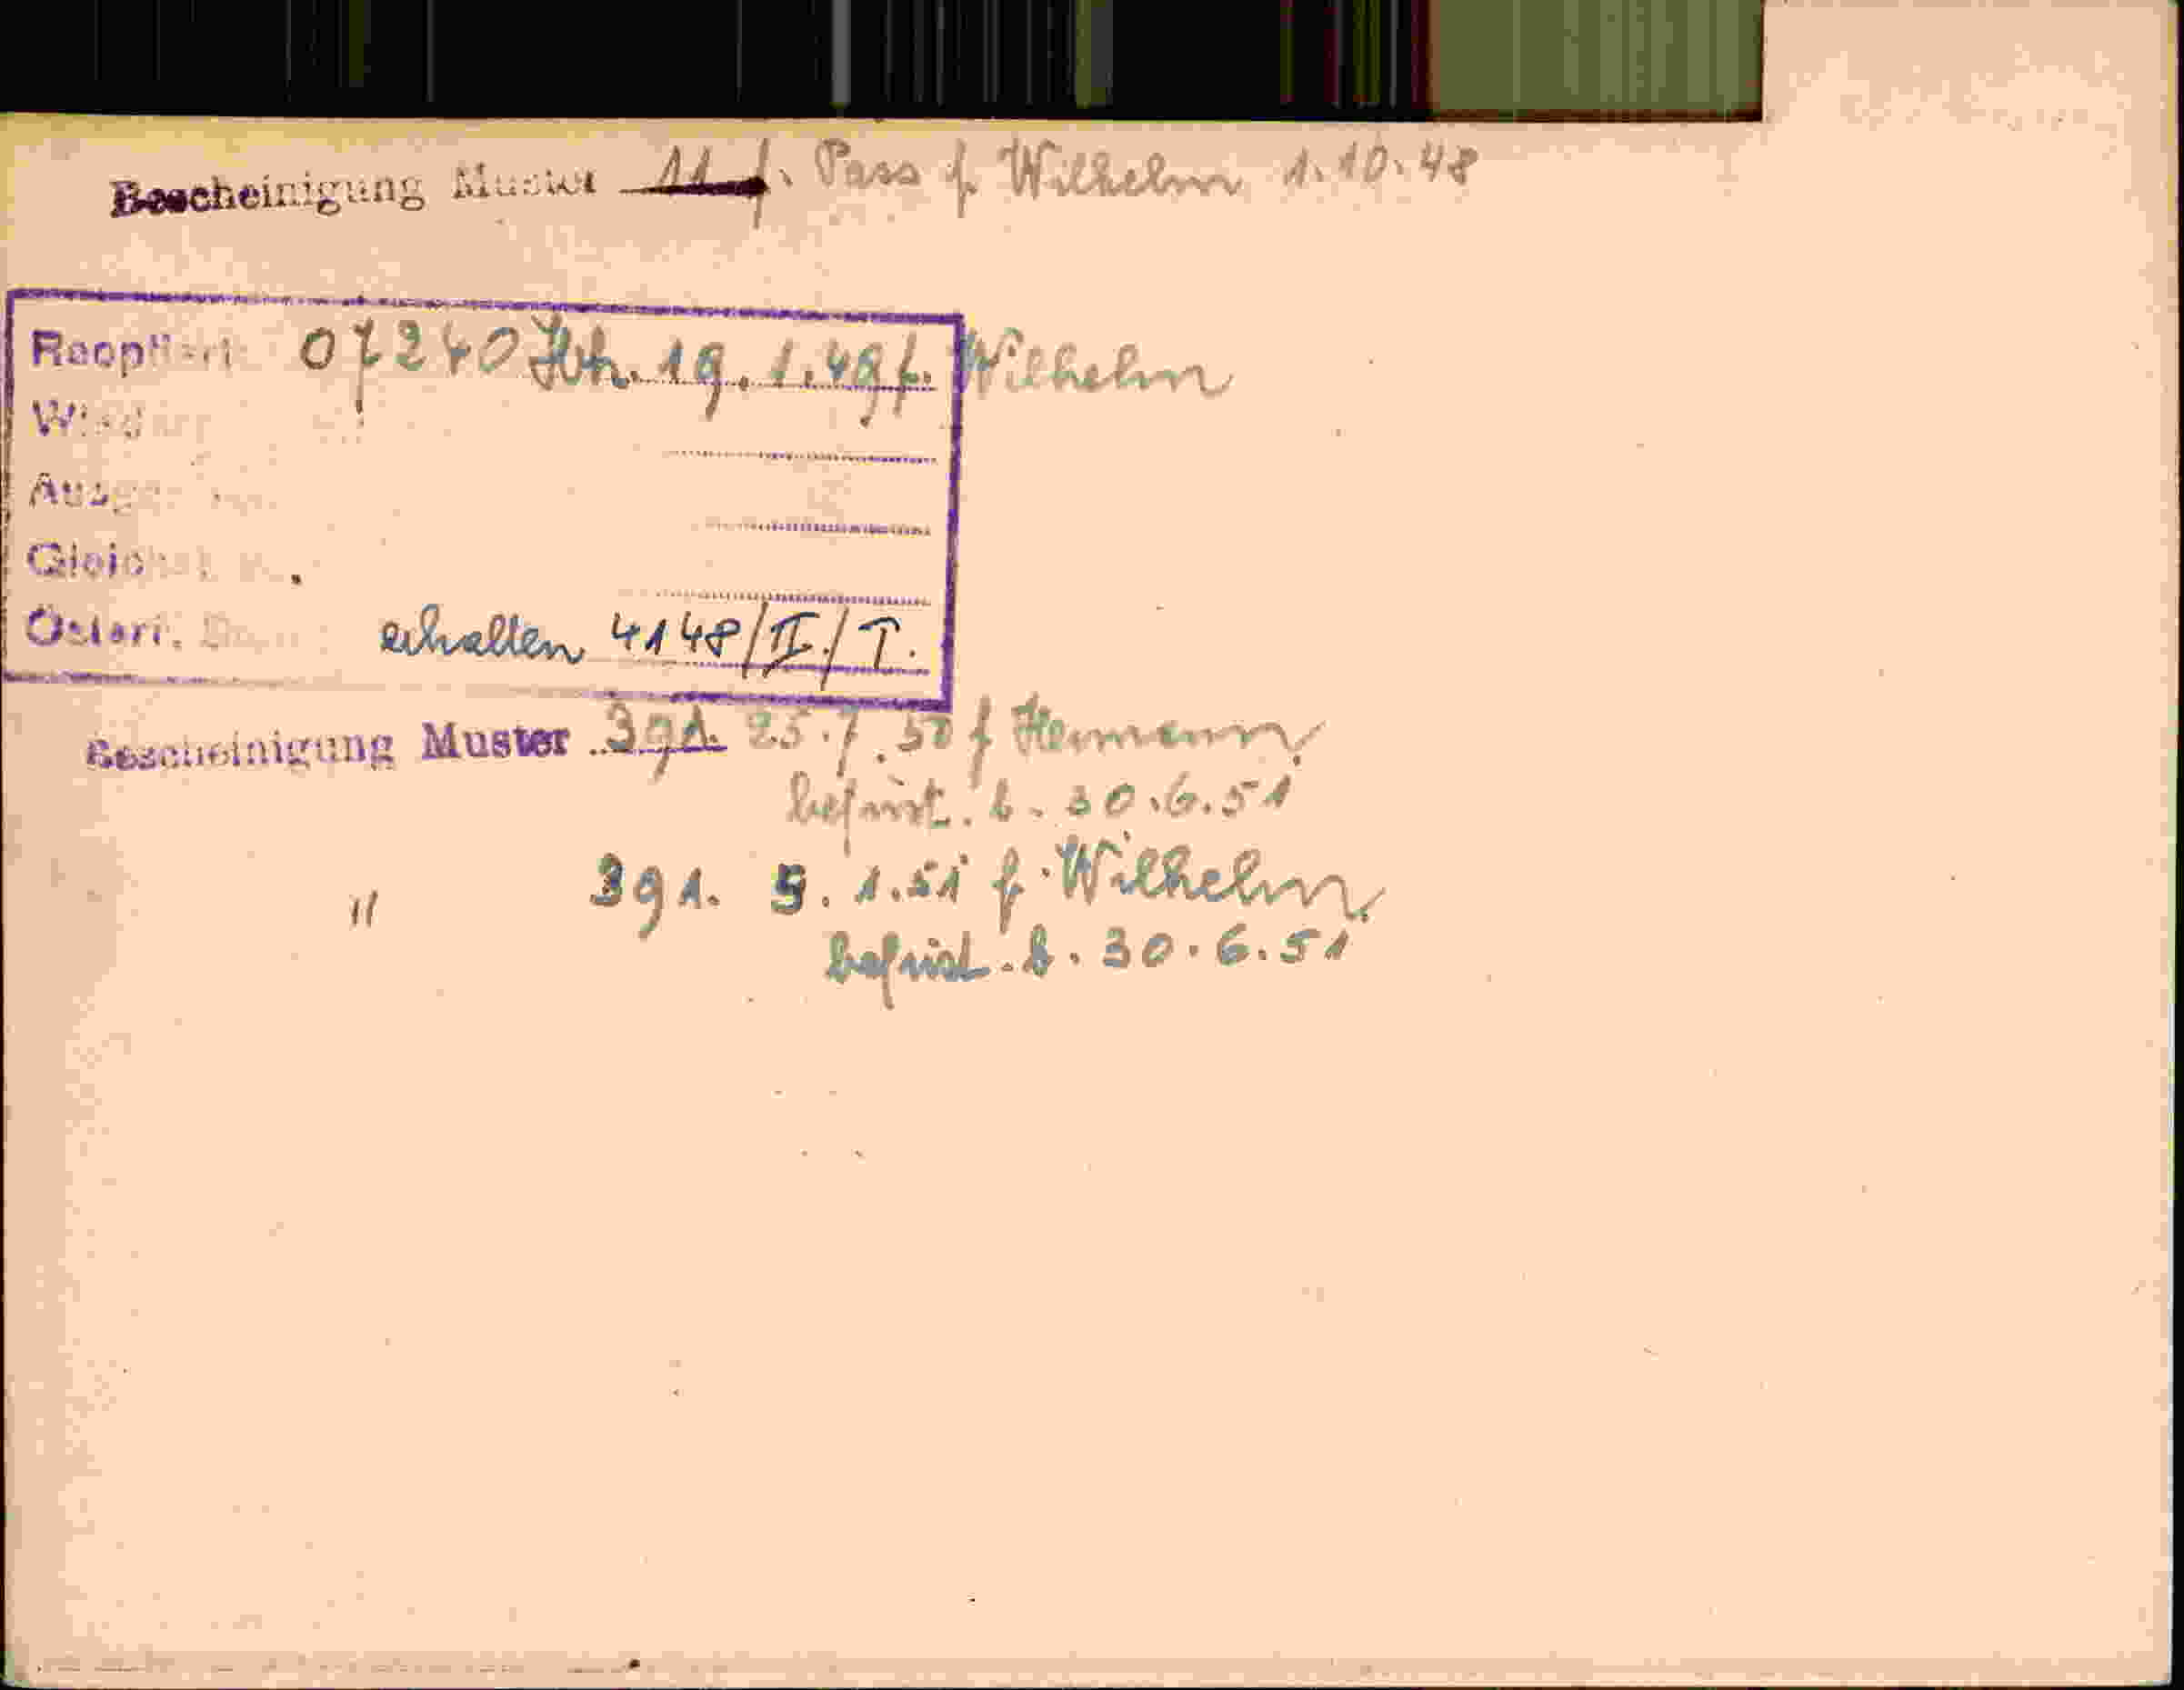 Bescheinigung Muster 11 f. Pass f. Wilhelm 1.10.48
07240 19.1.49 f. Wilhelm
erhalten 4148/II./T.
Bescheinigung Muster 391. 25.7.50 f Hermann
befrist. b. 30.6.51
" 391. 9.1.51 f. Wilhelm
befrist. b. 30.6.51